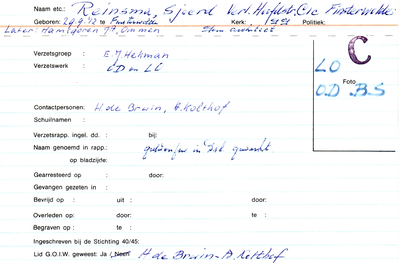 Naam etc.: Reinsma, Sjoerd Verl. Hoofdstr. C11c Finsterwolde
Geboren: 29.9.'12 te Finsterwolde Kerk: Politiek:
Later: Hamsgoren 77, Ommen
Verzetsgroep : E.J. Hekman
Verzetswerk : OD en LO
C
LO
Foto
O.D. B.S
Contactpersonen: H de Bruin, Kolthof
Schuilnaam :
Verzetsrapp. ingel. dd. : bij:
Naam genoemd in rapp.:
op bladzijde:
Gearresteerd op : door:
Gevangen gezeten in :
Bevrijd op : uit : door:
Overleden op: door: te :
Begraven op : te :
Ingeschreven bij de Stichting 40/45:
Lid G.O.I.W. geweest: Ja / Neen H de Bruin - A Kolthof